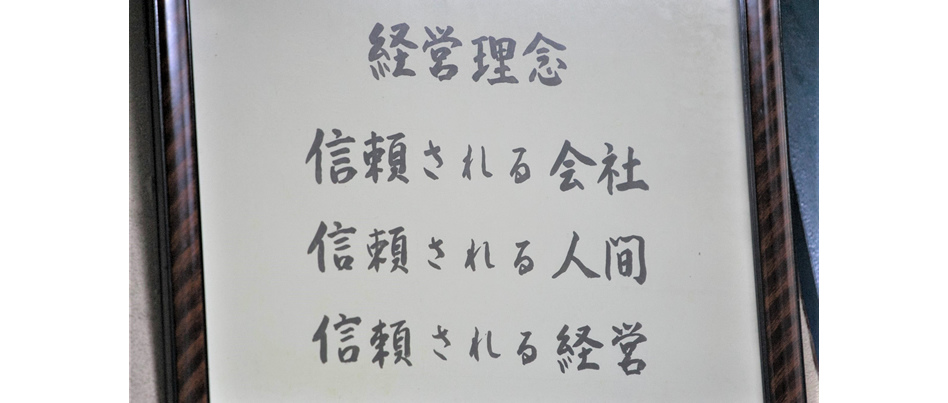 経営理念
信頼される会社
信頼される人間
信頼される経営